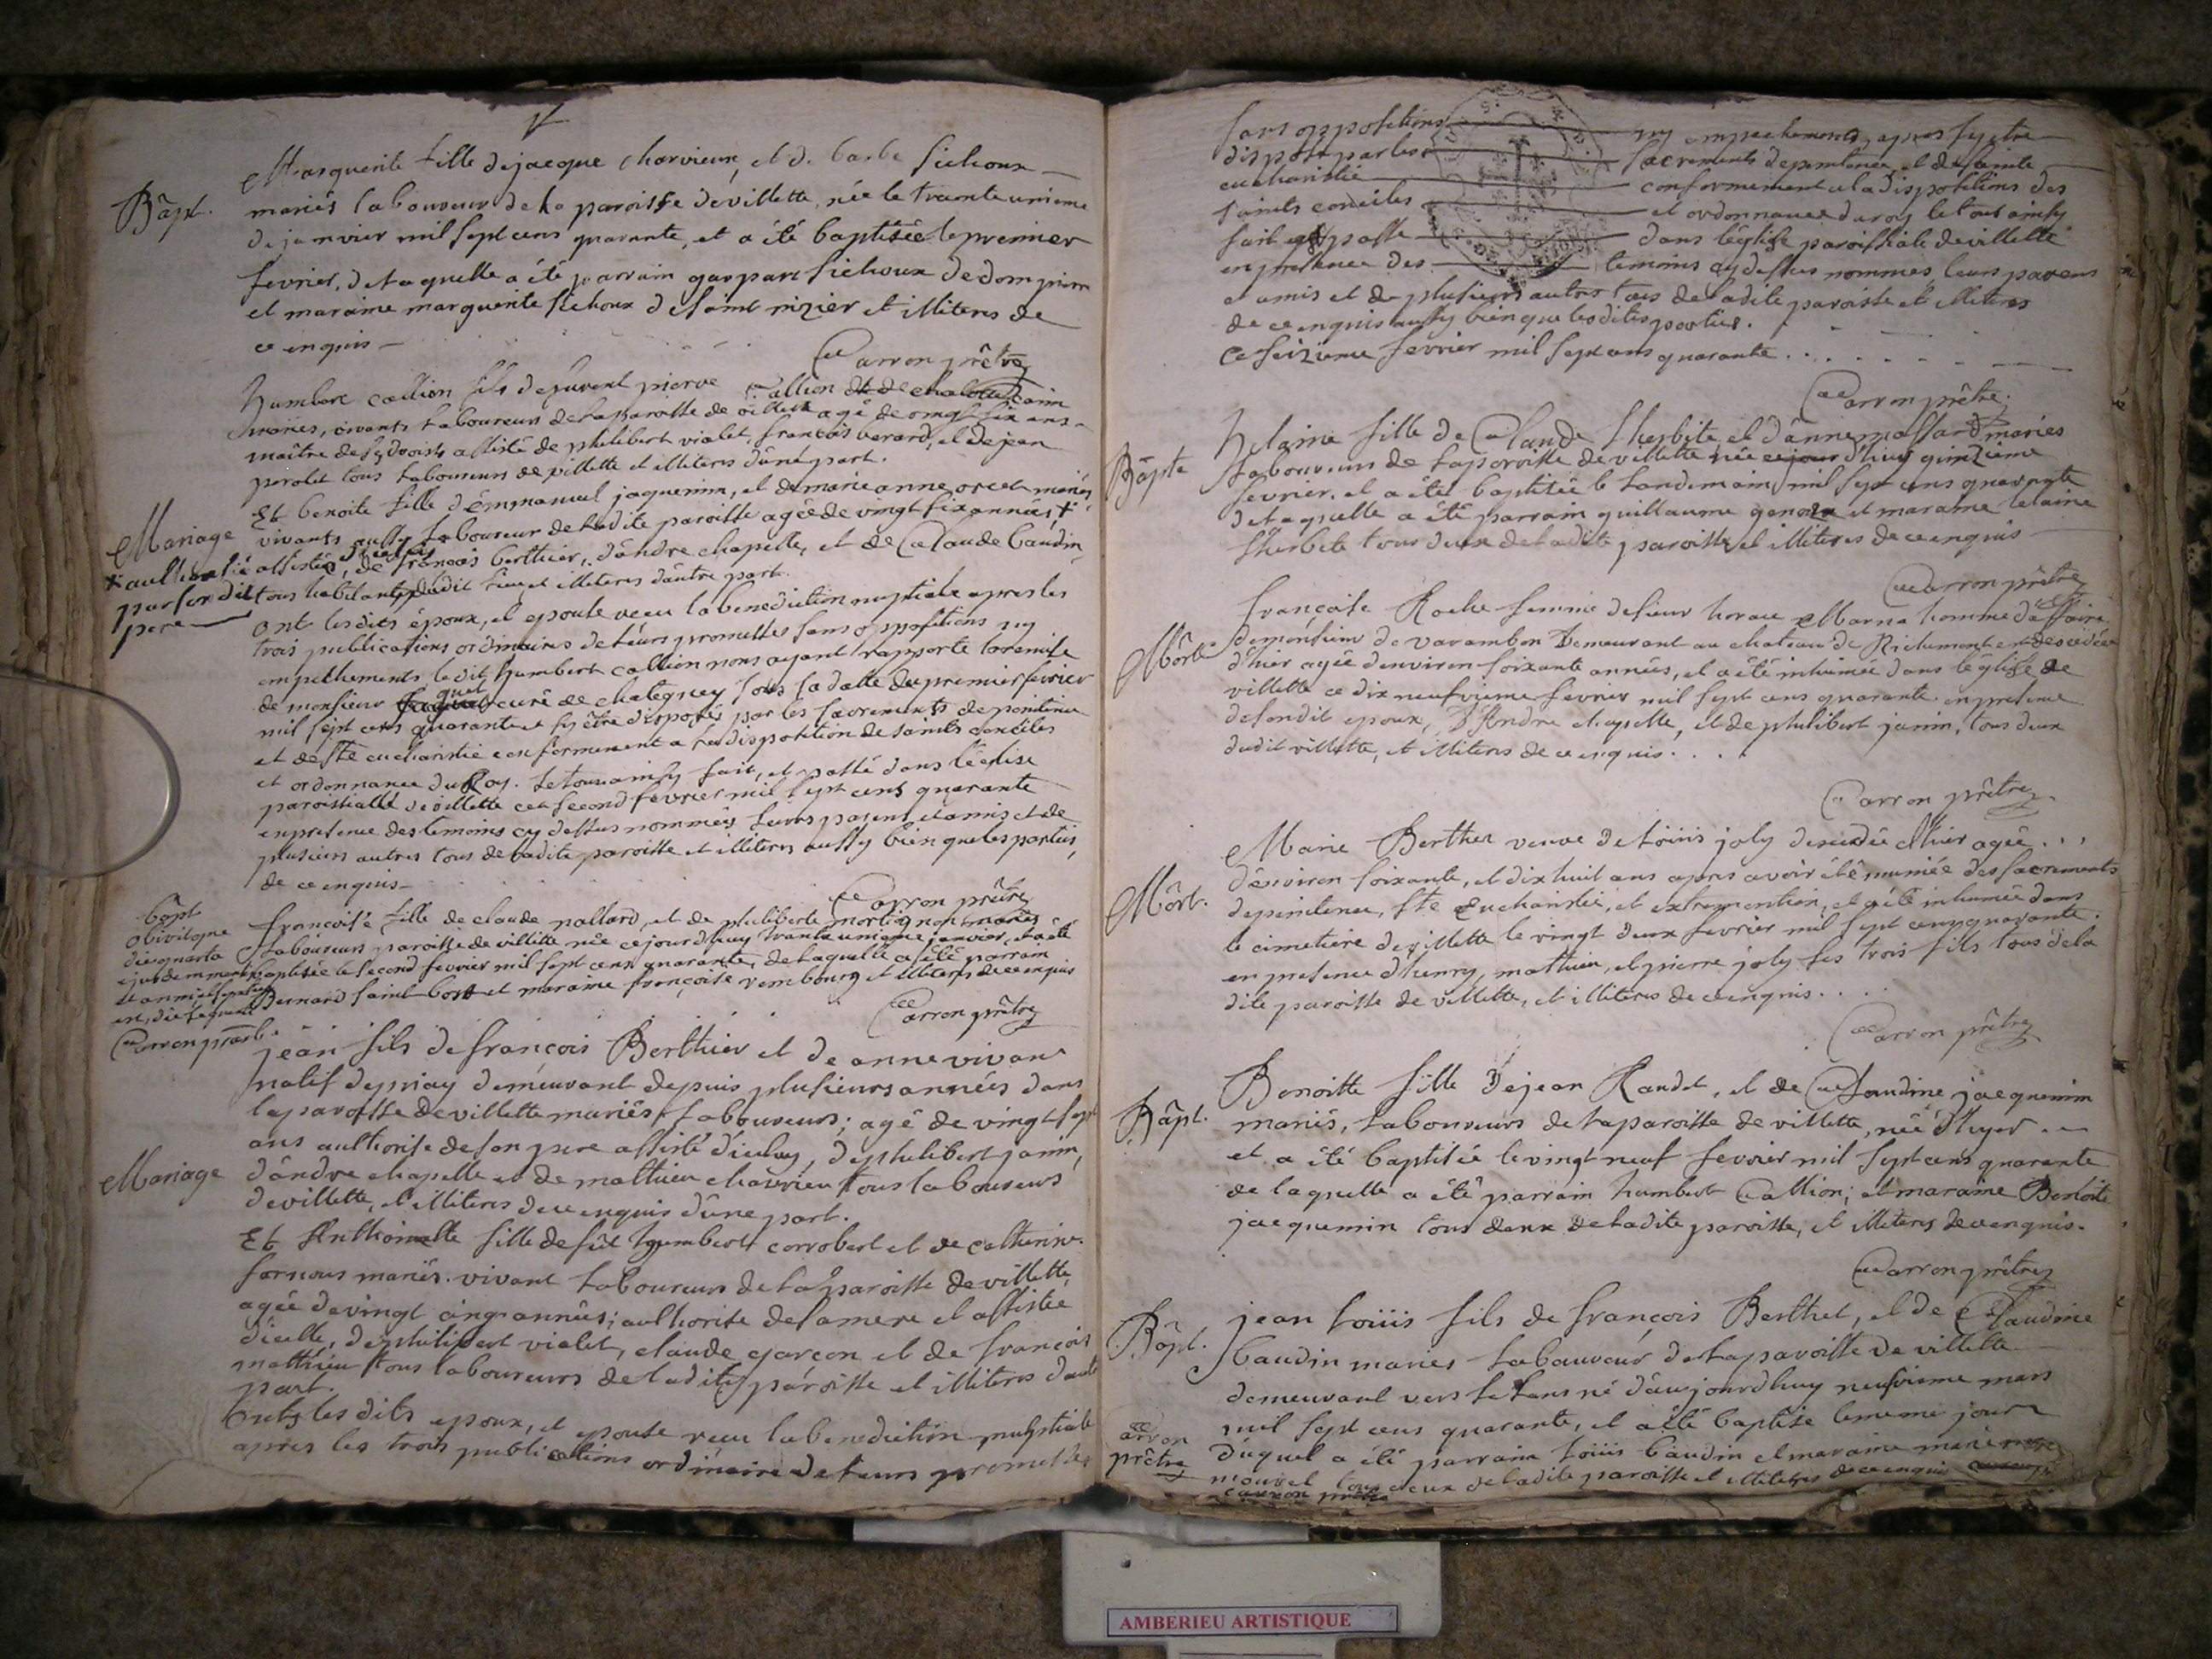 Bâpt.
Marguerite fille de jacque charvieux, et de barbe sichoux
mariés laboureur de la paroisse de villette, née le trante unieme
de janvier mil sept cens quarante, et a été baptisée le premier
fevrier, de laquelle a été parrain gaspart sichoux de dompierre
et maraine marguerite sichoux de saint nizier et illiteres de
ce enquis
Carron prêtre
humbert callion fils de fuvent pierre Callion et de
mariés, vivants laboureurs de la paroisse de villette agé de vingt six ans
maître de ses droists assisté de philibert violet, françois berard, et de jean
perolet tous laboureurs de villette et illiteres d'une part.
Mariage
Et benoite fille d'emmanuel jaquemin, et de marie anne orcet mariés
vivants aussy laboureur de ladite paroisse agée de vingt six années +
+ authorisée par son dit pere
assistée d'iceluy, de françois berthier, d'andre chapelle, et de Claude baudin
tous habitants dudit lieu et illiteres d'autre part.
ont lesdits époux, et epouse receu la benediction nuptiale apres les
trois publications ordinaires de leurs promesses sans oppositions ny
empechements ledit humbert callion nous ayant rapporté la remise
de monsieur curé de chalegney sous la datte du premier fevrier
mil sept cens quarante et sy être disposés par les sacrements de penitence
et de ste eucharistie conformement a la disposition de saints conciles
et ordonnance du Roy. le tout ainsy fait, et passé dans l'eglise
paroissialle de villette cet second fevrier mil sept cens quarante
en presence des temoins cy dessus nommés leurs parens et amis et de
plusieurs autres tous de ladite paroisse et illiteres aussy bien que les parties,
de ce enquis
Carron prêtre
bâpt
obiit
die quarta
ejusdem mensis
et anni
Carron
françoise fille de claude pallard, et de philiberte mortier non mariés
laboureurs paroisse de villette née ce jourdhuy trante unieme janvier, et a été
baptisée le second fevrier mil sept cens quarante, de laquelle a été parrain
Bernard saint bost et maraine françoise rembourg et illiteres de ce enquis
Carron prêtre
Mariage
jean fils de françois Berthier et de anne vivant
natif de priay demeurant depuis plusieurs années dans
la paroisse de villette mariés laboureurs; agé de vingt sept
ans authorisé de son pere assisté d'iceluy, de philibert janin,
d'andre chapelle et de mathieu chavrieu tous laboureurs
de villette, et illiteres de ce enquis d'une part.
Et Anthoinette fille de fût humbert corrobert et de catherine
fornous mariés. vivant laboureurs de la paroisse de villette,
agée de vingt cinq années; authorisé de sa mere et assistée
d'icelle, de philibert violet, claude garcon et de françois
mathieu tous laboureurs de ladite paroisse et illiteres d'autre
part.
lesdits epoux, et epouse receu la benediction nuptiale
apres les trois publications ordinaire de leurs promesses
sans oppositions ny empechements, apres sy etre
disposé par les sacrements de penitence, et de sainte
eucharistie conformement a la dispositions des
saints conciles et ordonnance du roy le tout ainsy
fait et passé dans l'église paroissiale de villette
en presence des temoins cy dessus nommés leurs parens
et amis et de plusieurs autres tous de ladite paroisse et illiteres
de ce enquis aussy bien que lesdites parties.
Ce seizieme fevrier mil sept cens quarante
Carron prêtre
Bâpte
helaine fille de Claude Sherbite et d'anne massard mariés
laboureurs de la paroisse de villette née ce jour d'huy quinzieme
fevrier. et a été baptisée le landemain mil sept cens quarante
de laquelle a été parrain guillaume genost et maraine helaine
Sherbete tous deux de ladite paroisse et illiteres de ce enquis
Carron prêtre
Môrte
françoise Roche femme de sieur horace Marna homme d'affaire
de monsieur de varambon demeurant au chateau de Richemont est decedée
d'hier agée d'environ soixante années, et a été inhumée dans l'église de
villette ce dix neufvieme fevrier mil sept cens quarante. en presence
de son dit epoux, d'Andre chapelle, et de philibert janin, tous deux
dudit villette, et illiteres de ce enquis
Carron prêtre
Môrt.
Marie Berthet veuve de Loüis joly decedée d'hier agée
d'environ soixante, et dix huit ans apres avoir été munie des sacrements
de penitence, ste Eucharistie, et extremontion, et a été inhumée dans
le cimetiere de villette le vingt deux fevrier mil sept cens quarante.
en presence d'henry, mathieu, et pierre joly ses trois fils tous de la
dite paroisse de villette, et illiteres de ce enquis
Carron prêtre
Bâpt.
Benoitte fille de jean Randet, et de Claudine jacquemin
mariés, laboureurs de la paroisse de villette, née d'hyer
et a été baptisée le vingt neuf fevrier mil sept cens quarante
de laquelle a été parrain humbert Callion; et maraine Benoite
jacquemin tous deux de ladite paroisse, et illiteres de ce enquis
Carron prêtre
Bâpt.
jean Loüis fils de françois Berthet, et de Claudine
baudin mariés laboureur de la paroisse de villette
demeurant vers le tans né d'aujourdhuy neufvieme mars
mil sept cens quarante, et a été baptisé le meme jour
duquel a été parrain Loüis baudin et maraine marie
mourel tous deux de ladite paroisse et illiteres de ce enquis
Carron prêtre
Carron prêtre
AMBERIEU ARTISTIQUE